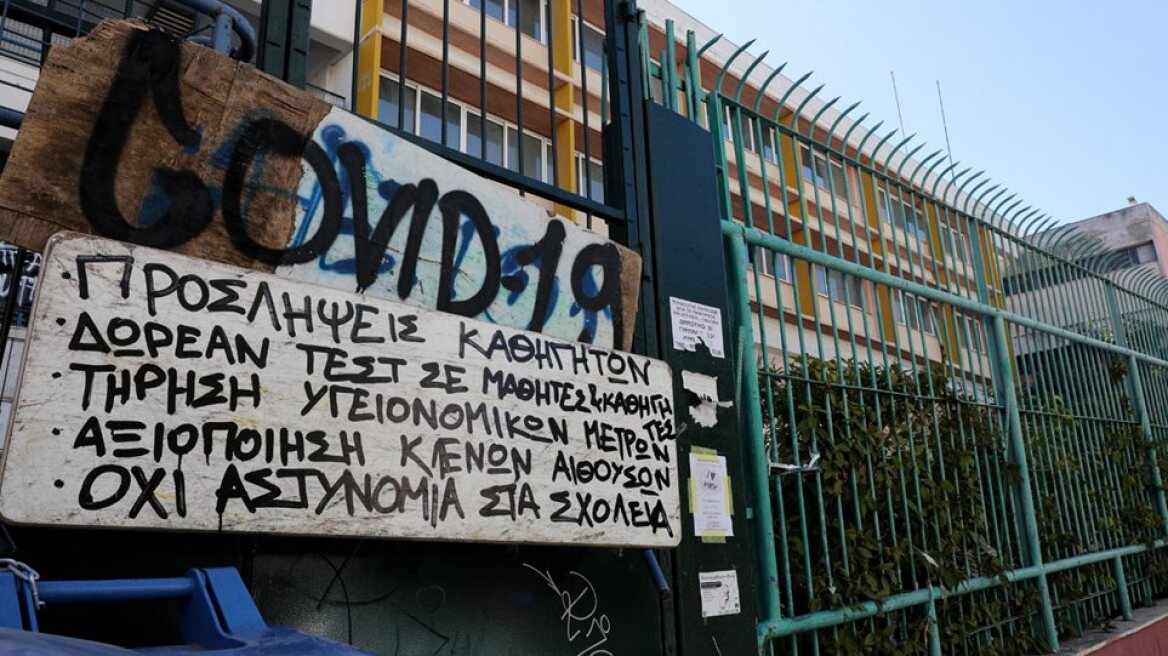 COVID-19
· ΠΡΟΣΛΗΨΕΙΣ ΚΑΘΗΓΗΤΩΝ
· ΔΩΡΕΑΝ ΤΕΣΤ ΣΕ ΜΑΘΗΤΕΣ & ΚΑΘΗΓΗ
ΤΕΣ
· ΤΗΡΗΣΗ ΥΓΕΙΟΝΟΜΙΚΩΝ ΜΕΤΡΩΝ
· ΑΞΙΟΠΟΙΗΣΗ ΚΛΕΝΩΝ ΑΙΘΟΥΣΩΝ
· ΟΧΙ ΑΣΤΥΝΟΜΙΑ ΣΤΑ ΣΧΟΛΕΙΑ